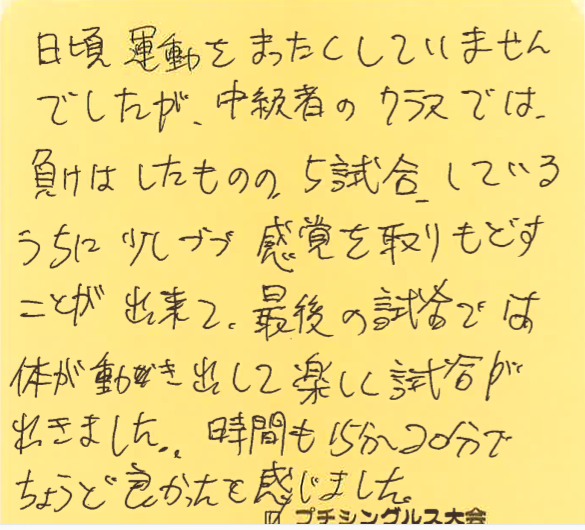 日頃運動をまったくしていません
でしたが、中級者のクラスでは、
負けはしたものの、5試合、している
うちに少しづつ感覚を取りもどす
ことが出来て、最後の試合では
体が動き出して楽しく試合が
出きました。時間も15分〜20分で
ちょうど良かったと感じました。
プチシングルス大会